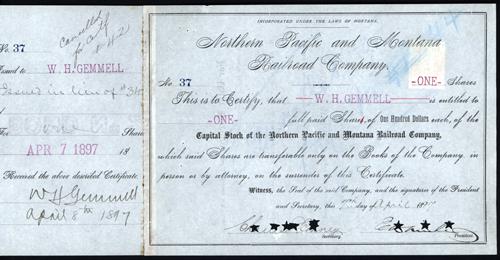 Cancelled
for Certif
# 42
No. 37
Issued to W. H. GEMMELL
Issued in lieu of # 36
For One Share
APR 7 1897 18
Received the above described Certificate.
W H Gemmell
April 8th 1897
INCORPORATED UNDER THE LAWS OF MONTANA.
Northern Pacific and Montana
Railroad Company.
No. 37 -ONE- Shares
This is to Certify, that W. H. GEMMELL is entitled to
-ONE- full paid Shares of One Hundred Dollars each, of the
Capital Stock of the Northern Pacific and Montana Railroad Company,
which said Shares are transferable only on the Books of the Company, in
person or by attorney, on the surrender of this Certificate.
Witness, the Seal of the said Company, and the signatures of the President
and Secretary, this 7th day of April 1897
Secretary. President.